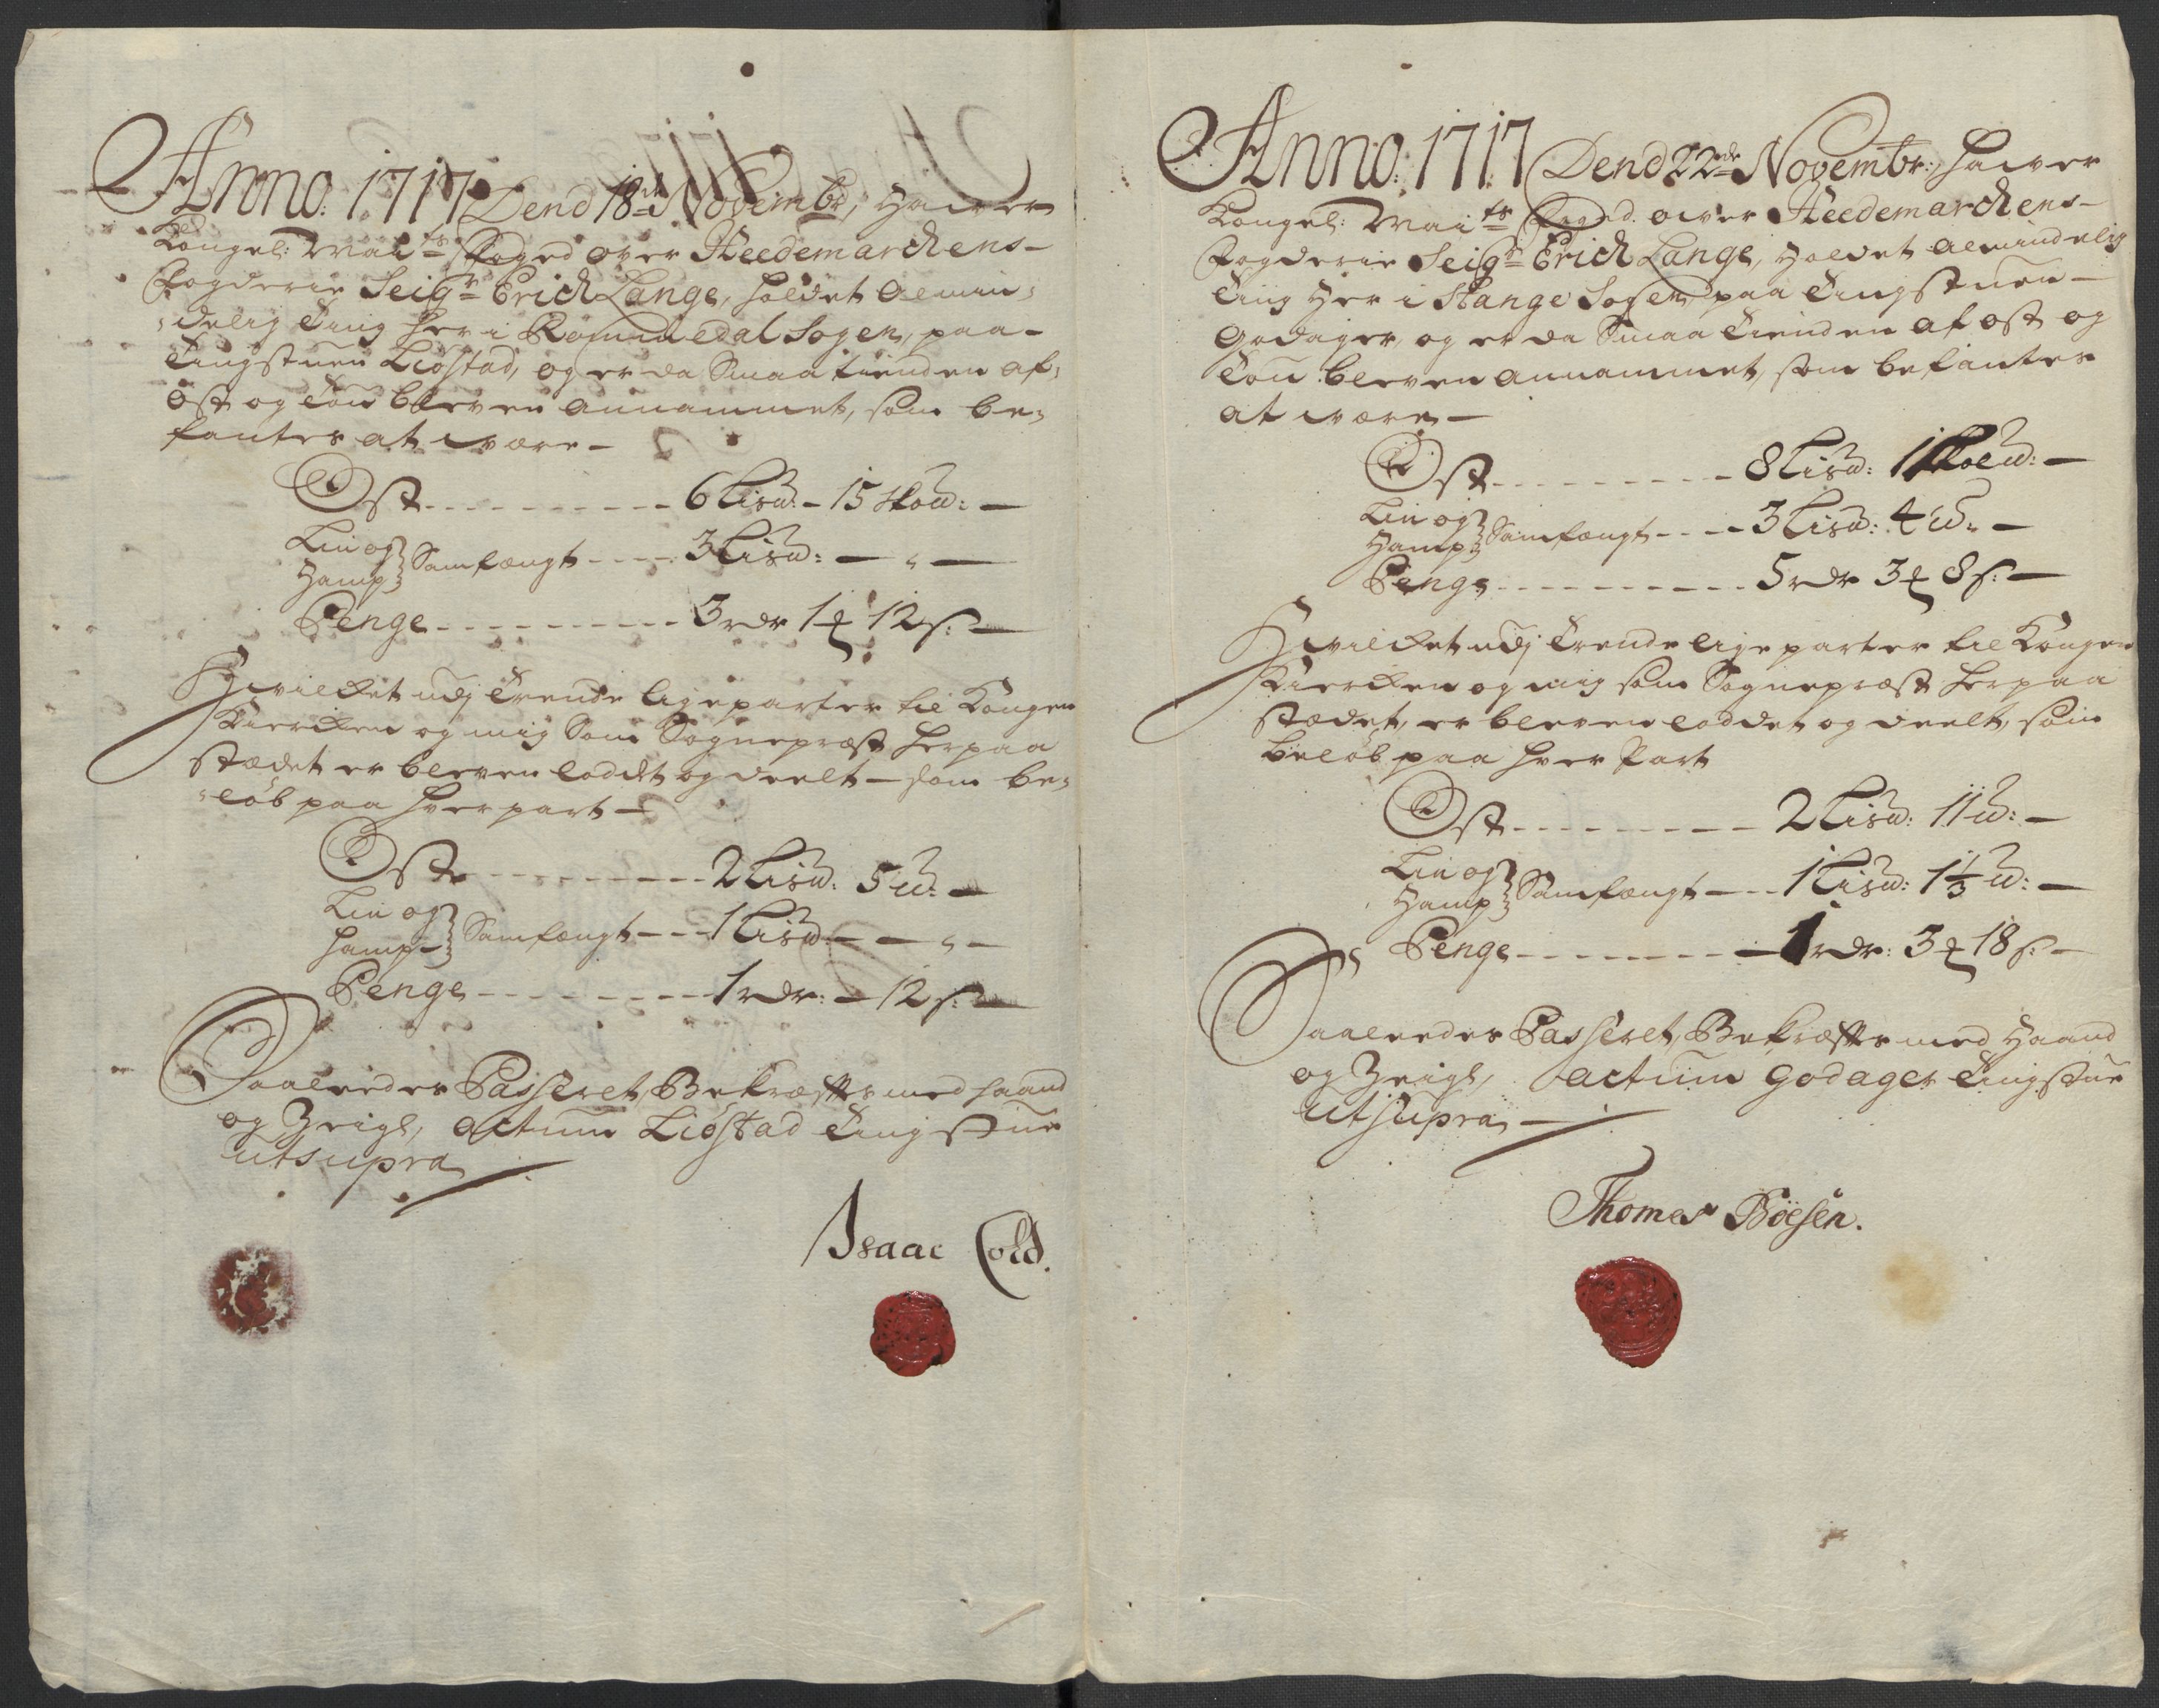 Anno: 1717 Dend 18de Novembr, Hawer
Kongel: Mai:ts Foged ower Heedemarchens-
Fogderie Seigr Erich Lange, holdet Almin:
:delig Ting her i Rommedal Sogen, paa-
Tingstuen Liøstad, og er da Smaa tienden af,
Ost og Tou bleven annammet, som be-
fantes at være-
Ost - - - - - - - - - - 6 Lis℔: - 15 Skol℔: -
Lin og
Hamp } Samfængt - - - - 3 Lis℔: - " -
Penge - - - - - - - - - - 3 rdr 1 ₰ 12 s: -
Hvilchet udj trende lige parter til Kongen
Kiercken og mig Som Sognepræst her paa
stædet er bleven loddet og deelt - som be-
-løb paa hver part -
Ost - - - - - - - - - - 2 Lisd: 5 ℔: -
Lin og
Hamp } Samfængt - - - 1 Lis℔ - - " -
Penge - - - - - - - - - 1 rdr: - 12 s: -
Saaleedes Passeret, Bekræftes med haand
og Zeigl, actum Liøstad Tingstue
ut supra
Isaac Cold.
Anno: 1717 Dend 22de Novembr: hawer
Kongel: Mai:ts Foged ower Heedemarchens-
Fogderie Seigr Erich Lange, Holdet almindelig
Ting Her i Stange Sogen paa Tingstuen-
Godager, og er da Smaa Tienden af ost og
Tou bleven annammet, som befantes
at være -
Ost - - - - - - - - - 8 Lis℔: 1 Skol℔: -
Lin og
Hamp } Samfængt - - - 3 Lis℔: 4 ℔: -
Penge - - - - - - - - - - 5 rdr 3 ₰ 8 s: -
Hvilchet udj trende lige parter til Kongen
Kiercken og mig som Sognepræst her paa
stædet, er bleven loddet og deelt, som
beløb paa hver Part
Ost - - - - - - - - - 2 Lis℔: 11 ℔: -
Lin og
Hamp } Samfængt - - - 1 Lis℔: 1 1/3 ℔: -
Penge - - - - - - - - - 1 rdr: 3 ₰ 18 s: -
Saaleedes Passeret, Bekræftes med Haand
og Zeigl, actum Godager Tingstue
ut supra -
Thomas Böesen.